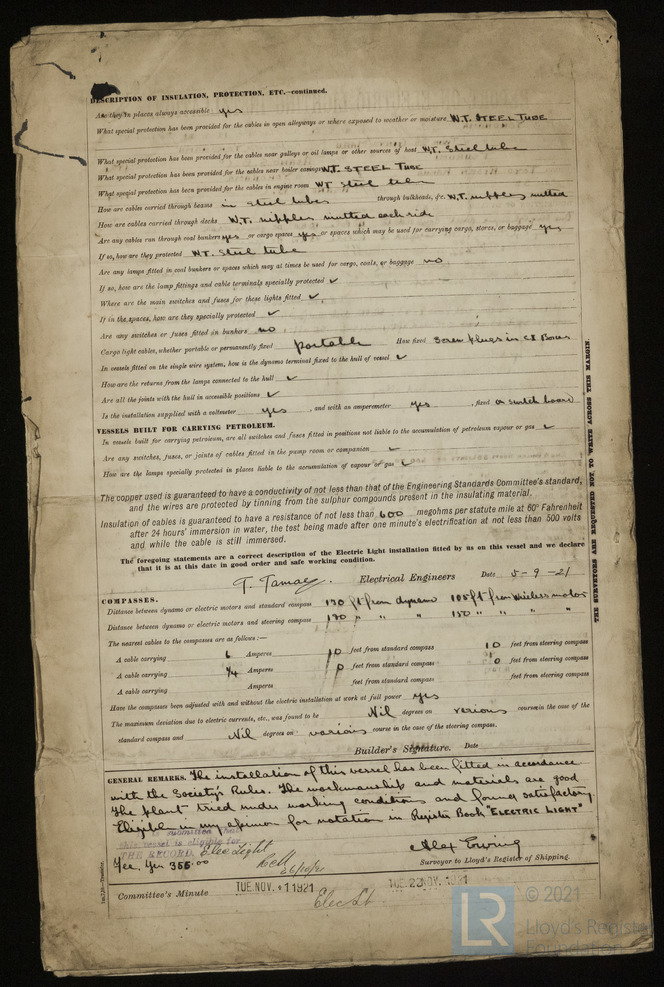 DESCRIPTION OF INSULATION, PROTECTION, ETC.—continued.
Are they in places always accessible yes
What special protection has been provided for the cables in open alleyways or where exposed to weather or moisture W.T. STEEL TUBE
What special protection has been provided for the cables near galleys or oil lamps or other sources of heat W.T. Steel tube
What special protection has been provided for the cables near boiler casings W.T. STEEL TUBE
What special protection has been provided for the cables in engine room WT Steel tube
How are cables carried through beams in steel tubes through bulkheads, &c. W.T. nipples nutted
How are cables carried through decks W.T. nipples nutted each side
Are any cables run through coal bunkers yes or cargo spaces yes or spaces which may be used for carrying cargo, stores, or baggage yes
If so, how are they protected WT. Steel tube
Are any lamps fitted in coal bunkers or spaces which may at times be used for cargo, coals, or baggage no
If so, how are the lamp fittings and cable terminals specially protected ✓
Where are the main switches and fuses for these lights fitted ✓
If in the spaces, how are they specially protected ✓
Are any switches or fuses fitted in bunkers no
Cargo light cables, whether portable or permanently fixed portable How fixed Screw plugs in CI Boxes
In vessels fitted on the single wire system, how is the dynamo terminal fixed to the hull of vessel ✓
How are the returns from the lamps connected to the hull ✓
Are all the joints with the hull in accessible positions ✓
Is the installation supplied with a voltmeter yes , and with an amperemeter yes , fixed on switch board
VESSELS BUILT FOR CARRYING PETROLEUM.
In vessels built for carrying petroleum, are all switches and fuses fitted in positions not liable to the accumulation of petroleum vapour or gas ✓
Are any switches, fuses, or joints of cables fitted in the pump room or companion ✓
How are the lamps specially protected in places liable to the accumulation of vapour or gas ✓
The copper used is guaranteed to have a conductivity of not less than that of the Engineering Standards Committee's standard,
and the wires are protected by tinning from the sulphur compounds present in the insulating material.
Insulation of cables is guaranteed to have a resistance of not less than 600 megohms per statute mile at 60° Fahrenheit
after 24 hours' immersion in water, the test being made after one minute's electrification at not less than 500 volts
and while the cable is still immersed.
The foregoing statements are a correct description of the Electric Light installation fitted by us on this vessel and we declare
that it is at this date in good order and safe working condition.
T. Tamae. Electrical Engineers Date 5-9-21
COMPASSES.
Distance between dynamo or electric motors and standard compass 170 ft from dynamo 105 ft from wireless motor
Distance between dynamo or electric motors and steering compass 170 " " " 150 " " " "
The nearest cables to the compasses are as follows:—
A cable carrying 6 Amperes 10 feet from standard compass 10 feet from steering compass
A cable carrying 1/4 Amperes 0 feet from standard compass 0 feet from steering compass
A cable carrying Amperes feet from standard compass feet from steering compass
Have the compasses been adjusted with and without the electric installation at work at full power yes
The maximum deviation due to electric currents, etc., was found to be Nil degrees on various course in the case of the
standard compass and Nil degrees on various course in the case of the steering compass.
Builder's Signature. Date
GENERAL REMARKS. The installation of this vessel has been fitted in accordance
with the Society's Rules. The workmanship and materials are good
The plant tried under working conditions and found satisfactory
Eligible in my opinion for notation in Register Book "ELECTRIC LIGHT"
this vessel is eligible for
THE RECORD Elec Light
Fee, Yen 355.00
Alex Ewing
Surveyor to Lloyd's Register of Shipping.
Committee's Minute TUE. NOV. 1 1921 TUE. 22 NOV. 1921
Elec Lt
THE SURVEYORS ARE REQUESTED NOT TO WRITE ACROSS THIS MARGIN.
LR
© 2021
Lloyd's Register
Foundation